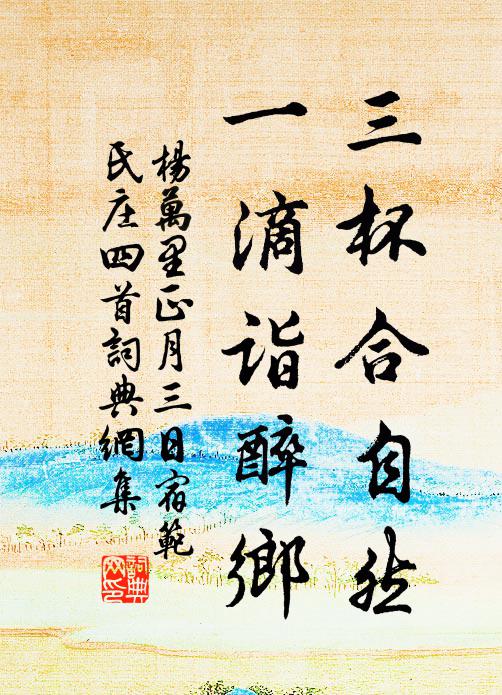 三杯合自然
一滴詣醉鄉
楊萬里正月三日宿範
氏庄四首詞典網集
詞典
网印